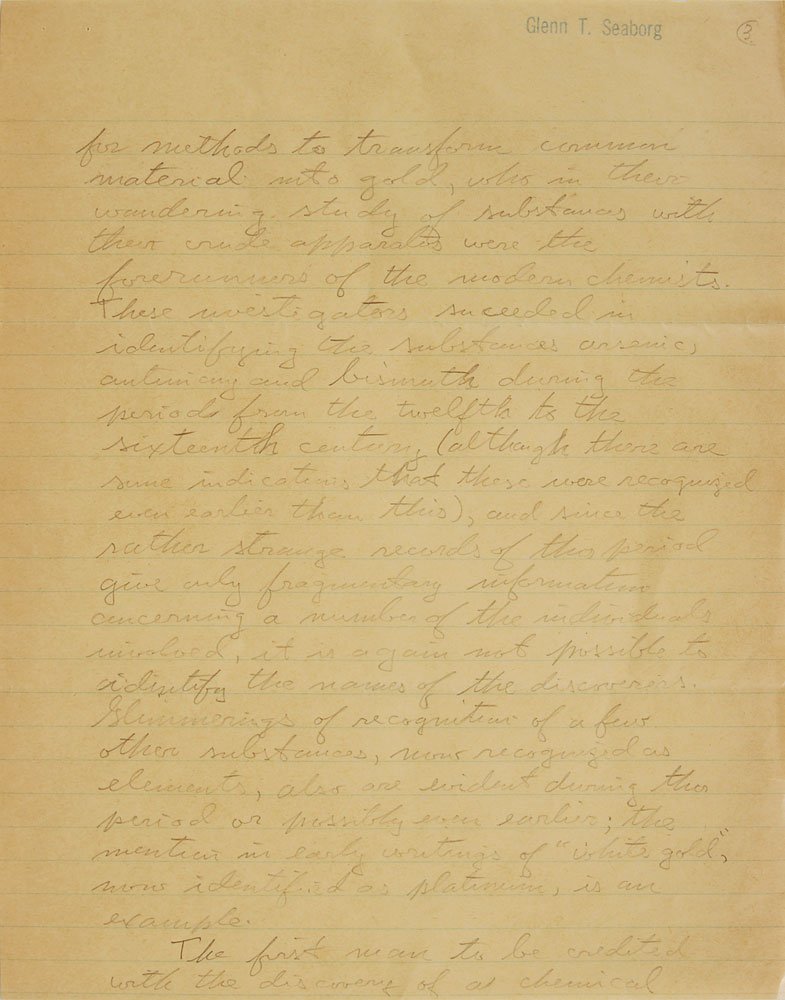 Glenn T. Seaborg
3.
for methods to transform common
material into gold, who in their
wandering study of substances with
their crude apparatus were the
forerunners of the modern chemists.
These investigators succeeded in
identifying the substances arsenic,
antimony and bismuth during the
periods from the twelfth to the
sixteenth century, (although there are
some indications that these were recognized
even earlier than this), and since the
rather strange records of this period
give only fragmentary information
concerning a number of the individuals
involved, it is again not possible to
identify the names of the discoverers.
Glimmerings of recognition of a few
other substances, now recognized as
elements, also are evident during this
period or possibly even earlier; the
mention in early writings of "white gold",
now identified as platinum, is an
example.
The first man to be credited
with the discovery of a chemical